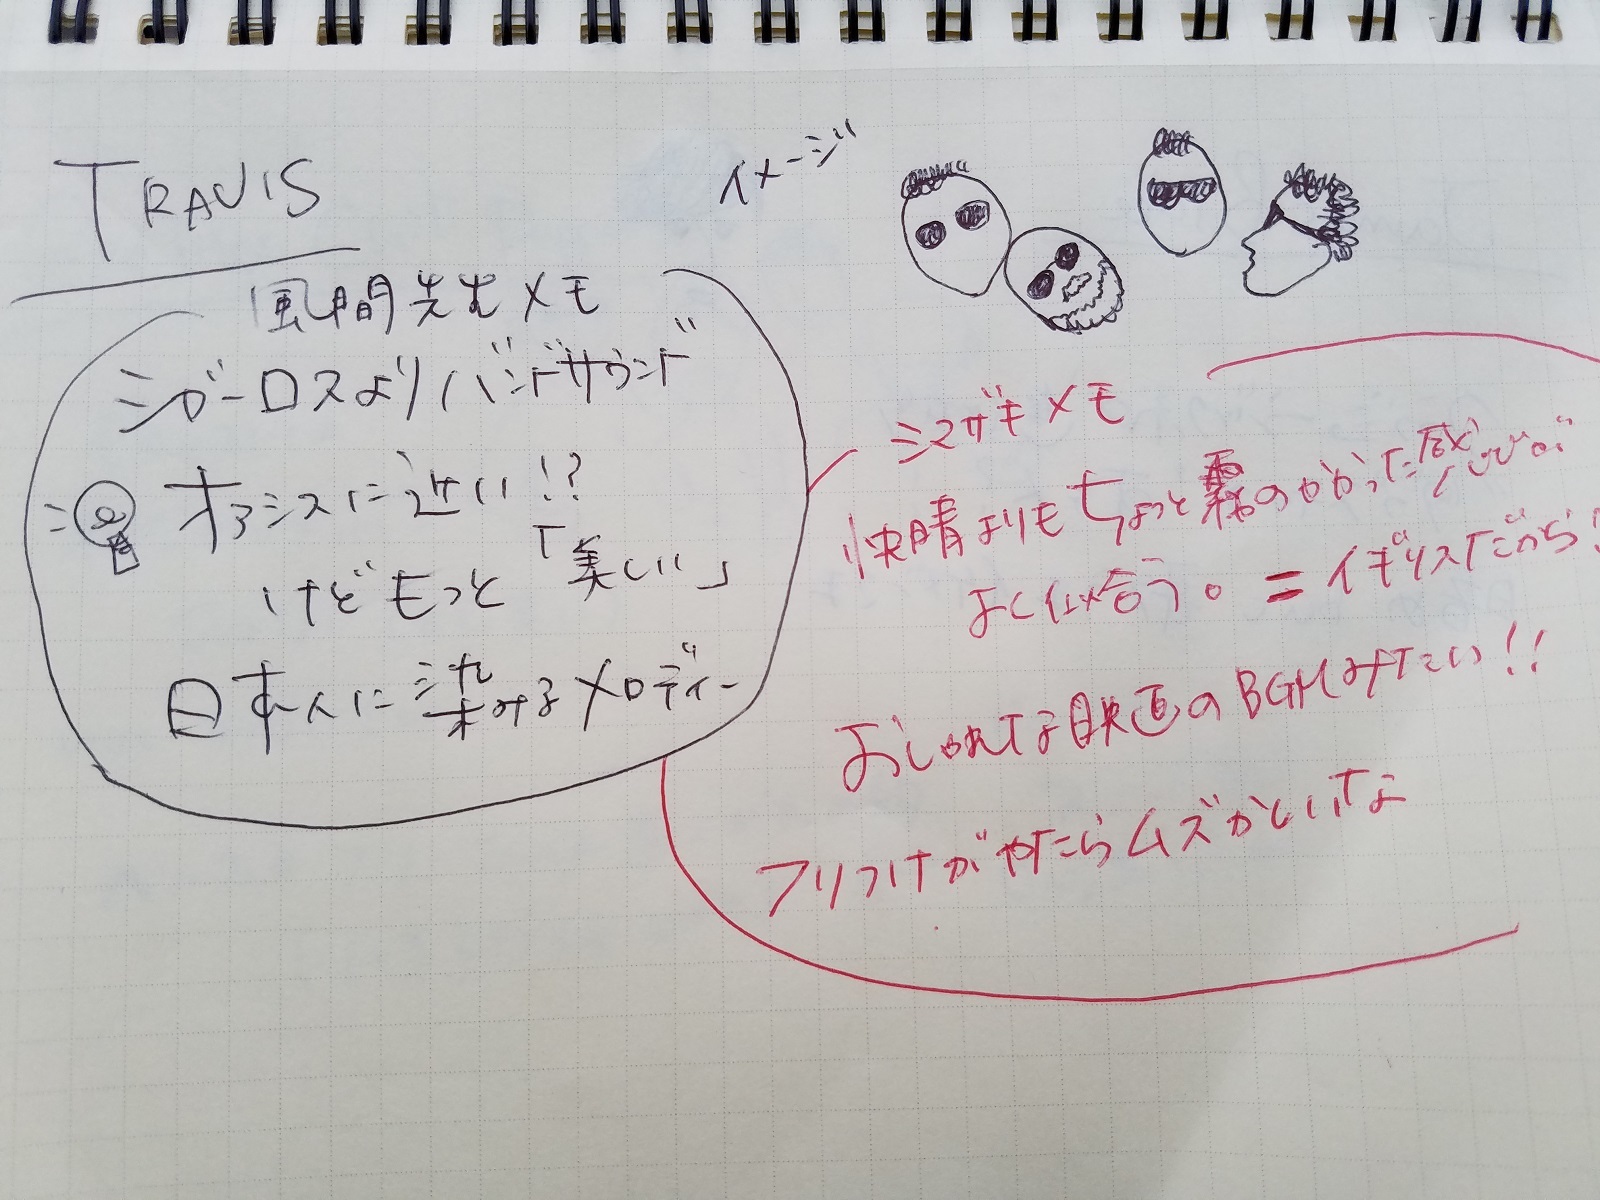 TRAVIS
イメージ
風間先生メモ
シガーロスよりバンドサウンド
オアシスに近い!?
けどもっと「美しい」
日本人に染みるメロディー
シマザキメモ
快晴よりもちょっと霧のかかった感じが
よく似合う。=イギリスだから!
おしゃれな映画のBGMみたい!!
フリつけがやたらムズかしいな